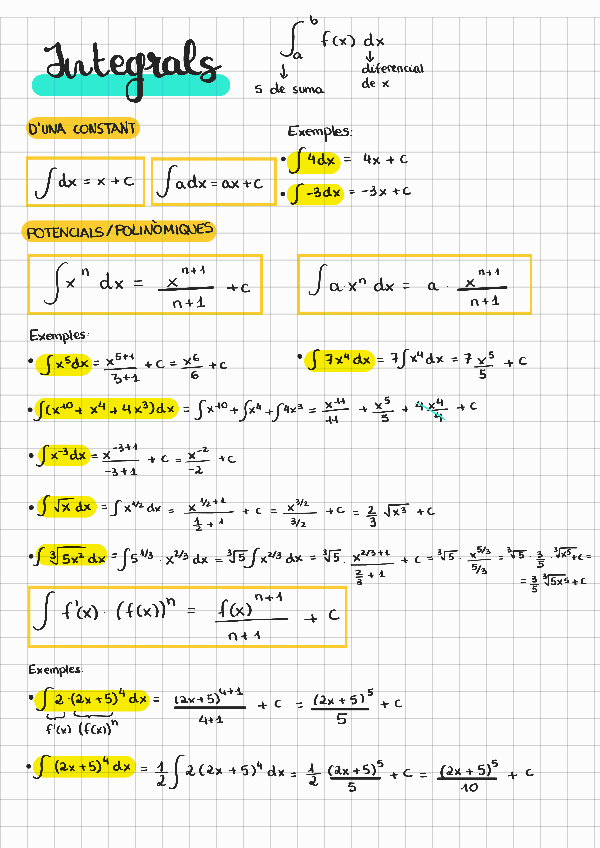 Integrals
∫_a^b f(x) dx
↓ S de suma
↓ diferencial de x
D'UNA CONSTANT
∫dx = x + c
∫adx = ax + c
Exemples:
• ∫4dx = 4x + c
• ∫-3dx = -3x + c
POTENCIALS/POLINÒMIQUES
∫x^n dx = x^(n+1)/(n+1) + c
∫a·x^n dx = a · x^(n+1)/(n+1)
Exemples:
• ∫x^5dx = x^(5+1)/(5+1) + c = x^6/6 + c
• ∫7x^4dx = 7∫x^4dx = 7 x^5/5 + c
• ∫(x^10 + x^4 + 4x^3)dx = ∫x^10 + ∫x^4 + ∫4x^3 = x^11/11 + x^5/5 + 4x^4/4 + c
• ∫x^-3dx = x^(-3+1)/(-3+1) + c = x^-2/-2 + c
• ∫√x dx = ∫x^(1/2) dx = x^(1/2+1)/(1/2+1) + c = x^(3/2)/(3/2) + c = 2/3 √x³ + c
• ∫∛5x² dx = ∫5^(1/3) · x^(2/3) dx = ∛5∫x^(2/3) dx = ∛5 · x^(2/3+1)/(2/3+1) + c = ∛5 · x^(5/3)/(5/3) = ∛5 · 3/5 · ∛x⁵ + c =
= 3/5 ∛5x⁵ + c
∫f'(x) · (f(x))^n = f(x)^(n+1)/(n+1) + c
Exemples:
• ∫2·(2x+5)^4 dx = (2x+5)^(4+1)/(4+1) + c = (2x+5)^5/5 + c
f'(x) (f(x))^n
• ∫(2x+5)^4 dx = 1/2 ∫2(2x+5)^4 dx = 1/2 (2x+5)^5/5 + c = (2x+5)^5/10 + c